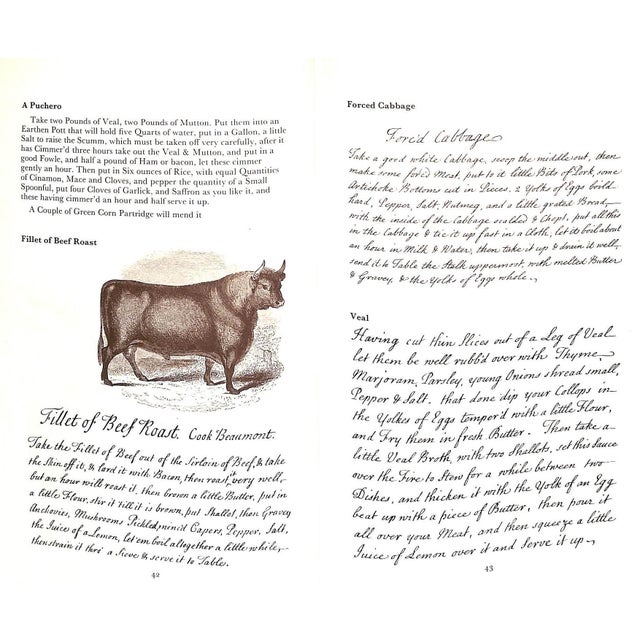 A Puchero
Take two Pounds of Veal, two Pounds of Mutton. Put them into an
Earthen Pott that will hold five Quarts of water, put in a Gallon, a little
Salt to raise the Scumm, which must be taken off very carefully, after it
has Cimmer'd three hours take out the Veal & Mutton, and put in a
good Fowle, and half a pound of Ham or bacon, let these cimmer
gently an Hour. Then put in Six ounces of Rice, with equal Quantities
of Cinamon, Mace and Cloves, and pepper the quantity of a Small
Spoonful, put four Cloves of Garlick, and Saffron as you like it, and
these having cimmer'd an hour and half serve it up.
A Couple of Green Corn Partridge will mend it
Fillet of Beef Roast
Fillet of Beef Roast. Cook Beaumont.
Take the Fillet of Beef out of the Sirloin of Beef, & take
the Skin off it, & lard it with Bacon, then roast it very well
but an hour will roast it, then brown a little Butter, put in
a little Flour, stir it till it is brown, put Shallot, then Gravey
Anchovies, Mushrooms Pickled, minc'd Capers, Pepper, Salt,
the Juice of a Lemon, let em boil altogether a little while,
then strain it thro' a Sieve & serve it to Table.
42
Forced Cabbage
Forc'd Cabbage
Take a good white Cabbage, scoop the middle out, then
make some forc'd Meat, put to it little Bits of Pork, some
Artichoke Bottoms cut in Pieces, 2 Yolks of Eggs boil'd
hard, Pepper, Salt, Nutmeg, and a little grated Bread,
with the inside of the Cabbage scalded & Chopt, put all this
in the Cabbage & tie it up fast in a Cloth, let it boil about
an hour in Milk & Water, then take it up & drain it well,
send it to Table the Stalk uppermost, with melted Butter
& Gravey, & the Yolks of Eggs whole.
Veal
Having cut thin Slices out of a Leg of Veal
let them be well rubb'd over with Thyme
Marjoram, Parsley, young Onions shread small,
Pepper & Salt. that done dip your Collops in
the Yolkes of Eggs temper'd with a little Flour,
and Fry them in fresh Butter. Then take a
little Veal Broth, with two Shallots, set this Sauce
over the Fire to Stew for a while between two
Dishes, and thicken it with the Yolk of an Egg
beat up with a piece of Butter, then pour it
all over your Meat, and then squeeze a little
Juice of Lemon over it and Serve it up
43